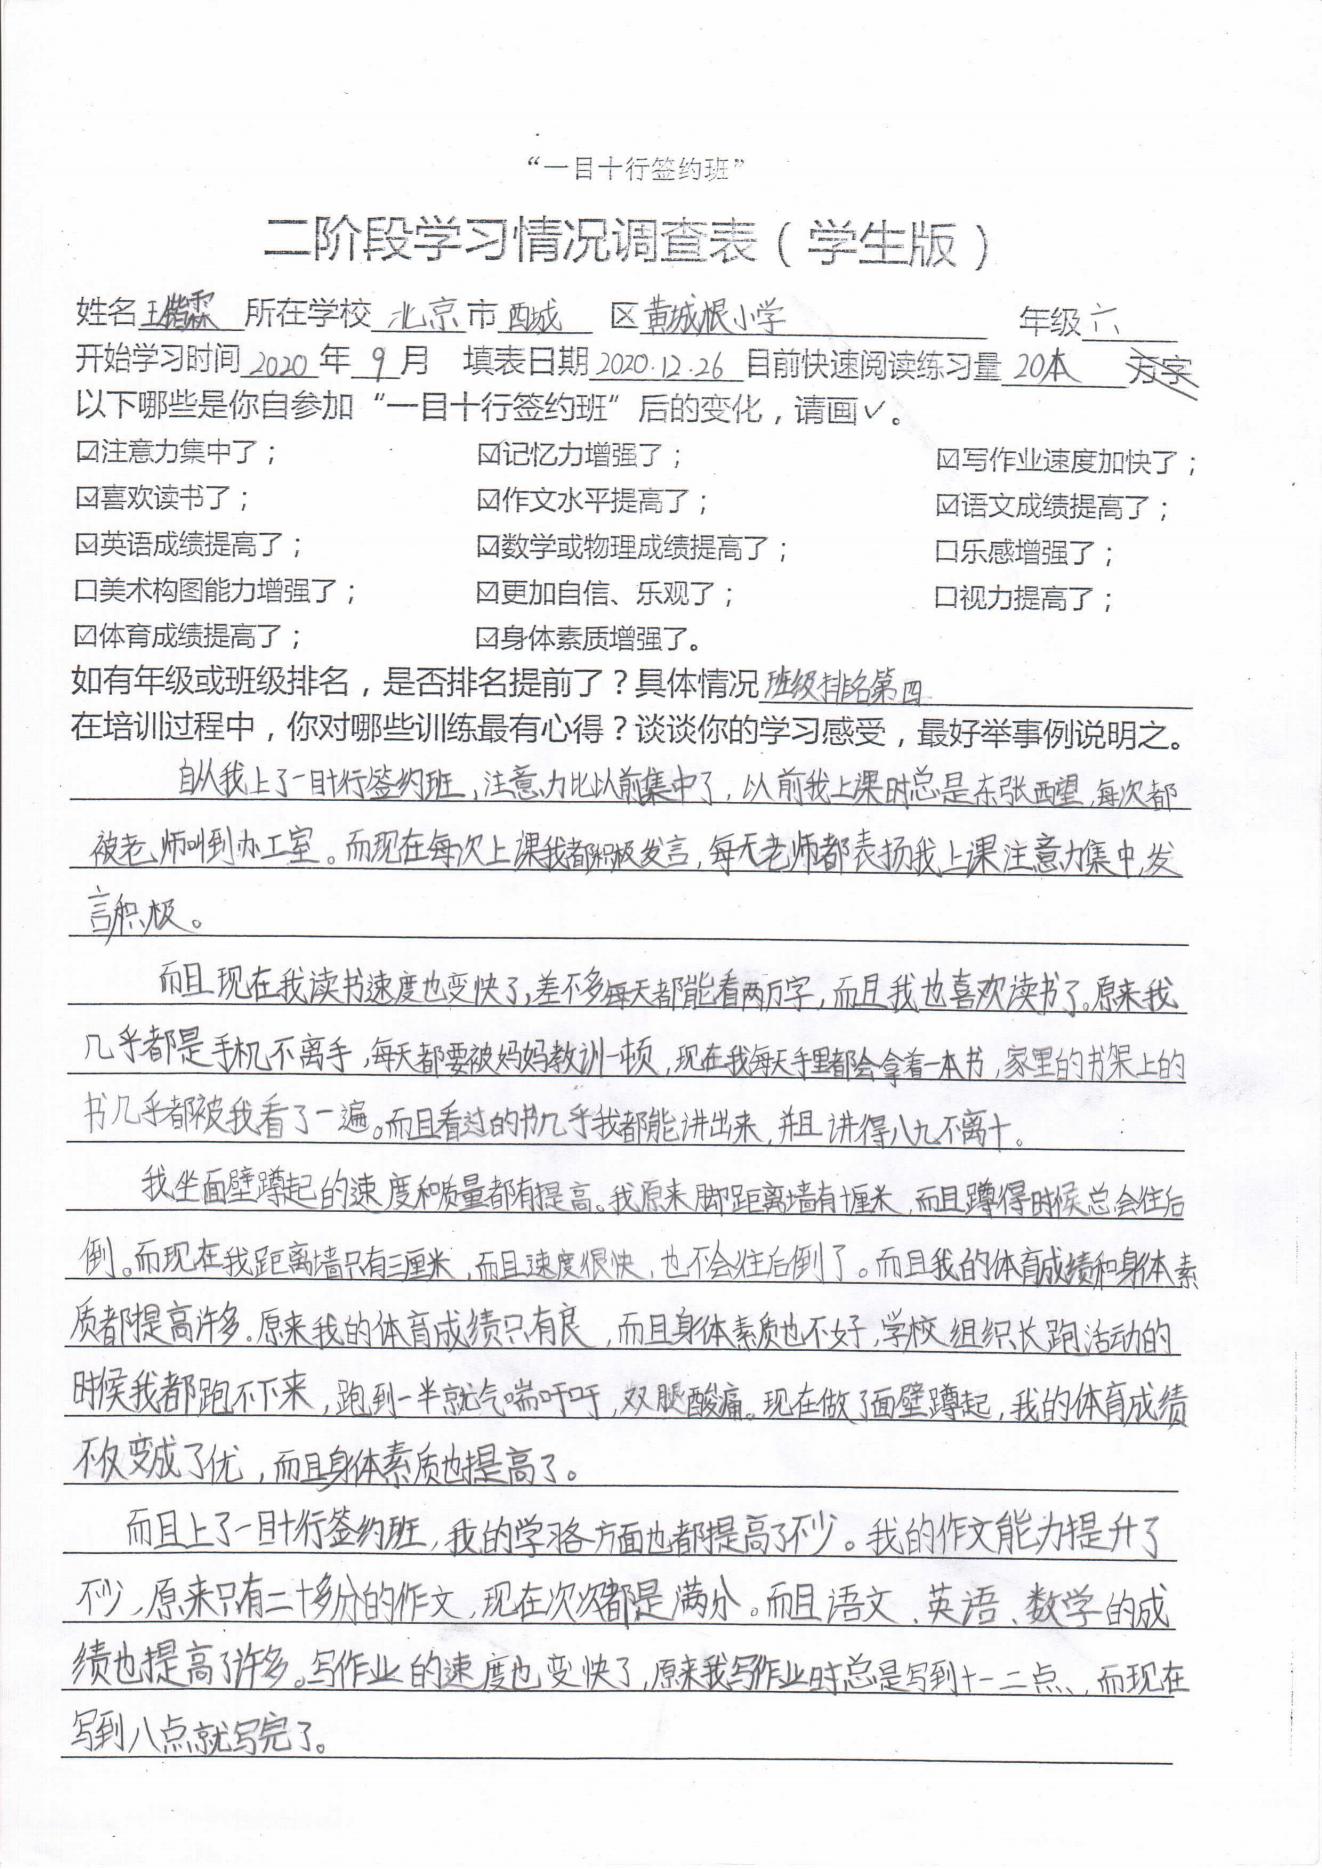 “一目十行签约班”
二阶段学习情况调查表（学生版）
姓名王锴霖 所在学校 北京市西城 区黄城根小学 年级六
开始学习时间2020年9月 填表日期2020.12.26目前快速阅读练习量20本 万字
以下哪些是你自参加“一目十行签约班”后的变化，请画✓。
☑注意力集中了； ☑记忆力增强了； ☑写作业速度加快了；
☑喜欢读书了； ☑作文水平提高了； ☑语文成绩提高了；
☑英语成绩提高了； ☑数学或物理成绩提高了； 口乐感增强了；
口美术构图能力增强了； ☑更加自信、乐观了； 口视力提高了；
☑体育成绩提高了； ☑身体素质增强了。
如有年级或班级排名，是否排名提前了？具体情况班级排名第四
在培训过程中，你对哪些训练最有心得？谈谈你的学习感受，最好举事例说明之。
自从我上了一目十行签约班，注意力比以前集中了，以前我上课时总是东张西望，每次都
被老师叫到办工室。而现在每次上课我都积极发言，每天老师都表扬我上课注意力集中，发
言积极。
而且现在我读书速度也变快了，差不多每天都能看两万字，而且我也喜欢读书了。原来我
几乎都是手机不离手，每天都要被妈妈教训一顿，现在我每天手里都会拿着一本书，家里的书架上的
书几乎都被我看了一遍。而且看过的书几乎我都能讲出来，并且讲得八九不离十。
我坐面壁蹲起的速度和质量都有提高。我原来脚距离墙有十厘米，而且蹲得时候总会往后
倒。而现在我距离墙只有三厘米，而且速度很快，也不会往后倒了。而且我的体育成绩和身体素
质都提高许多。原来我的体育成绩只有良，而且身体素质也不好，学校组织长跑活动的
时候我都跑不下来，跑到一半就气喘吁吁，双腿酸痛。现在做了面壁蹲起，我的体育成绩
不仅变成了优，而且身体素质也提高了。
而且上了一目十行签约班，我的学习各方面也都提高了不少。我的作文能力提升了
不少，原来只有二十多分的作文，现在次次都是满分。而且语文、英语、数学的成
绩也提高了许多。写作业的速度也变快了，原来我写作业时总是写到十一二点、，而现在
写到八点就写完了。